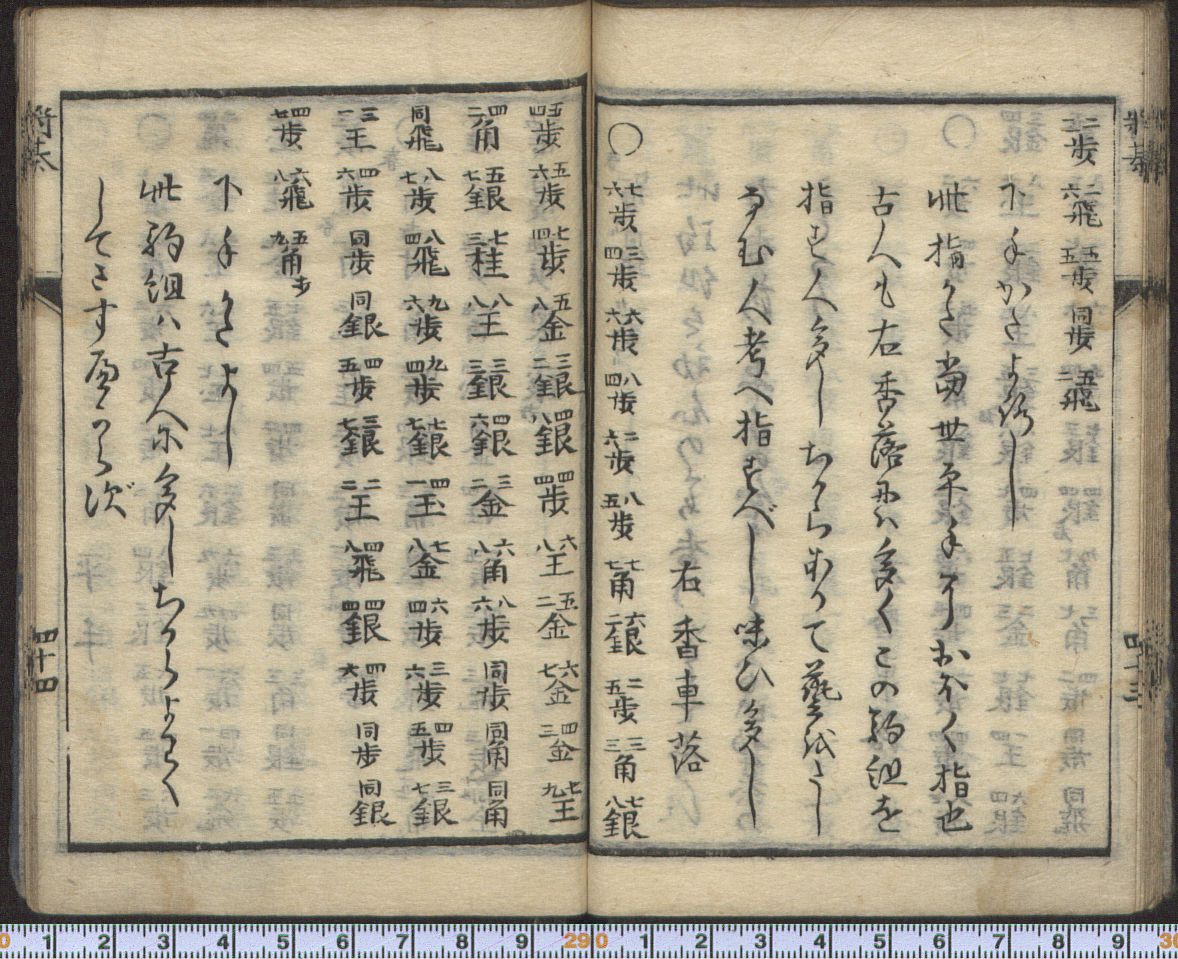 二七歩 二六飛 五五歩 同歩 五二飛
下手かさよろし
此指かさ當世平手よりおほく指也
古人も右香落にハ多くこの駒組を
指さる人多しちからありて藝
このむ人考へ指すべし味ひ多し
右香車落
○ 七六歩 三四歩 六六歩 八四歩 二六歩 八五歩 七七角 六二銀 二五歩 三三角 七八銀
五四歩 五六歩 七四歩 五八金 三二銀 四八銀 四四歩 六八王 五二金 六七金 四三金 七九王
四二角 五七銀 七三桂 八八王 三三銀 四六銀 三二金 六八角 八六歩 同歩 同角 同角
同飛 八七歩 八四飛 九六歩 九四歩 七七銀 四一王 七八金 六四歩 三六歩 四五歩 三七銀
三一王 四六歩 同歩 同銀 四五歩 三七銀 二二王 四八飛 四四銀 四六歩 同歩 同銀
四七歩 六八飛 五九角
下手かさよし
此駒組ハ古人に多しちからよわく
してさす
四十四